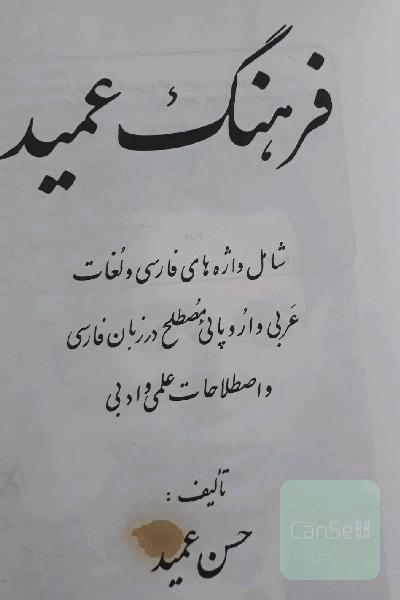 فرهنگ عمید
شامل واژه های فارسی و لغات
عربی و اروپائی مصطلح در زبان فارسی
و اصطلاحات علمی و ادبی
تألیف :
حسن عمید
CanSell